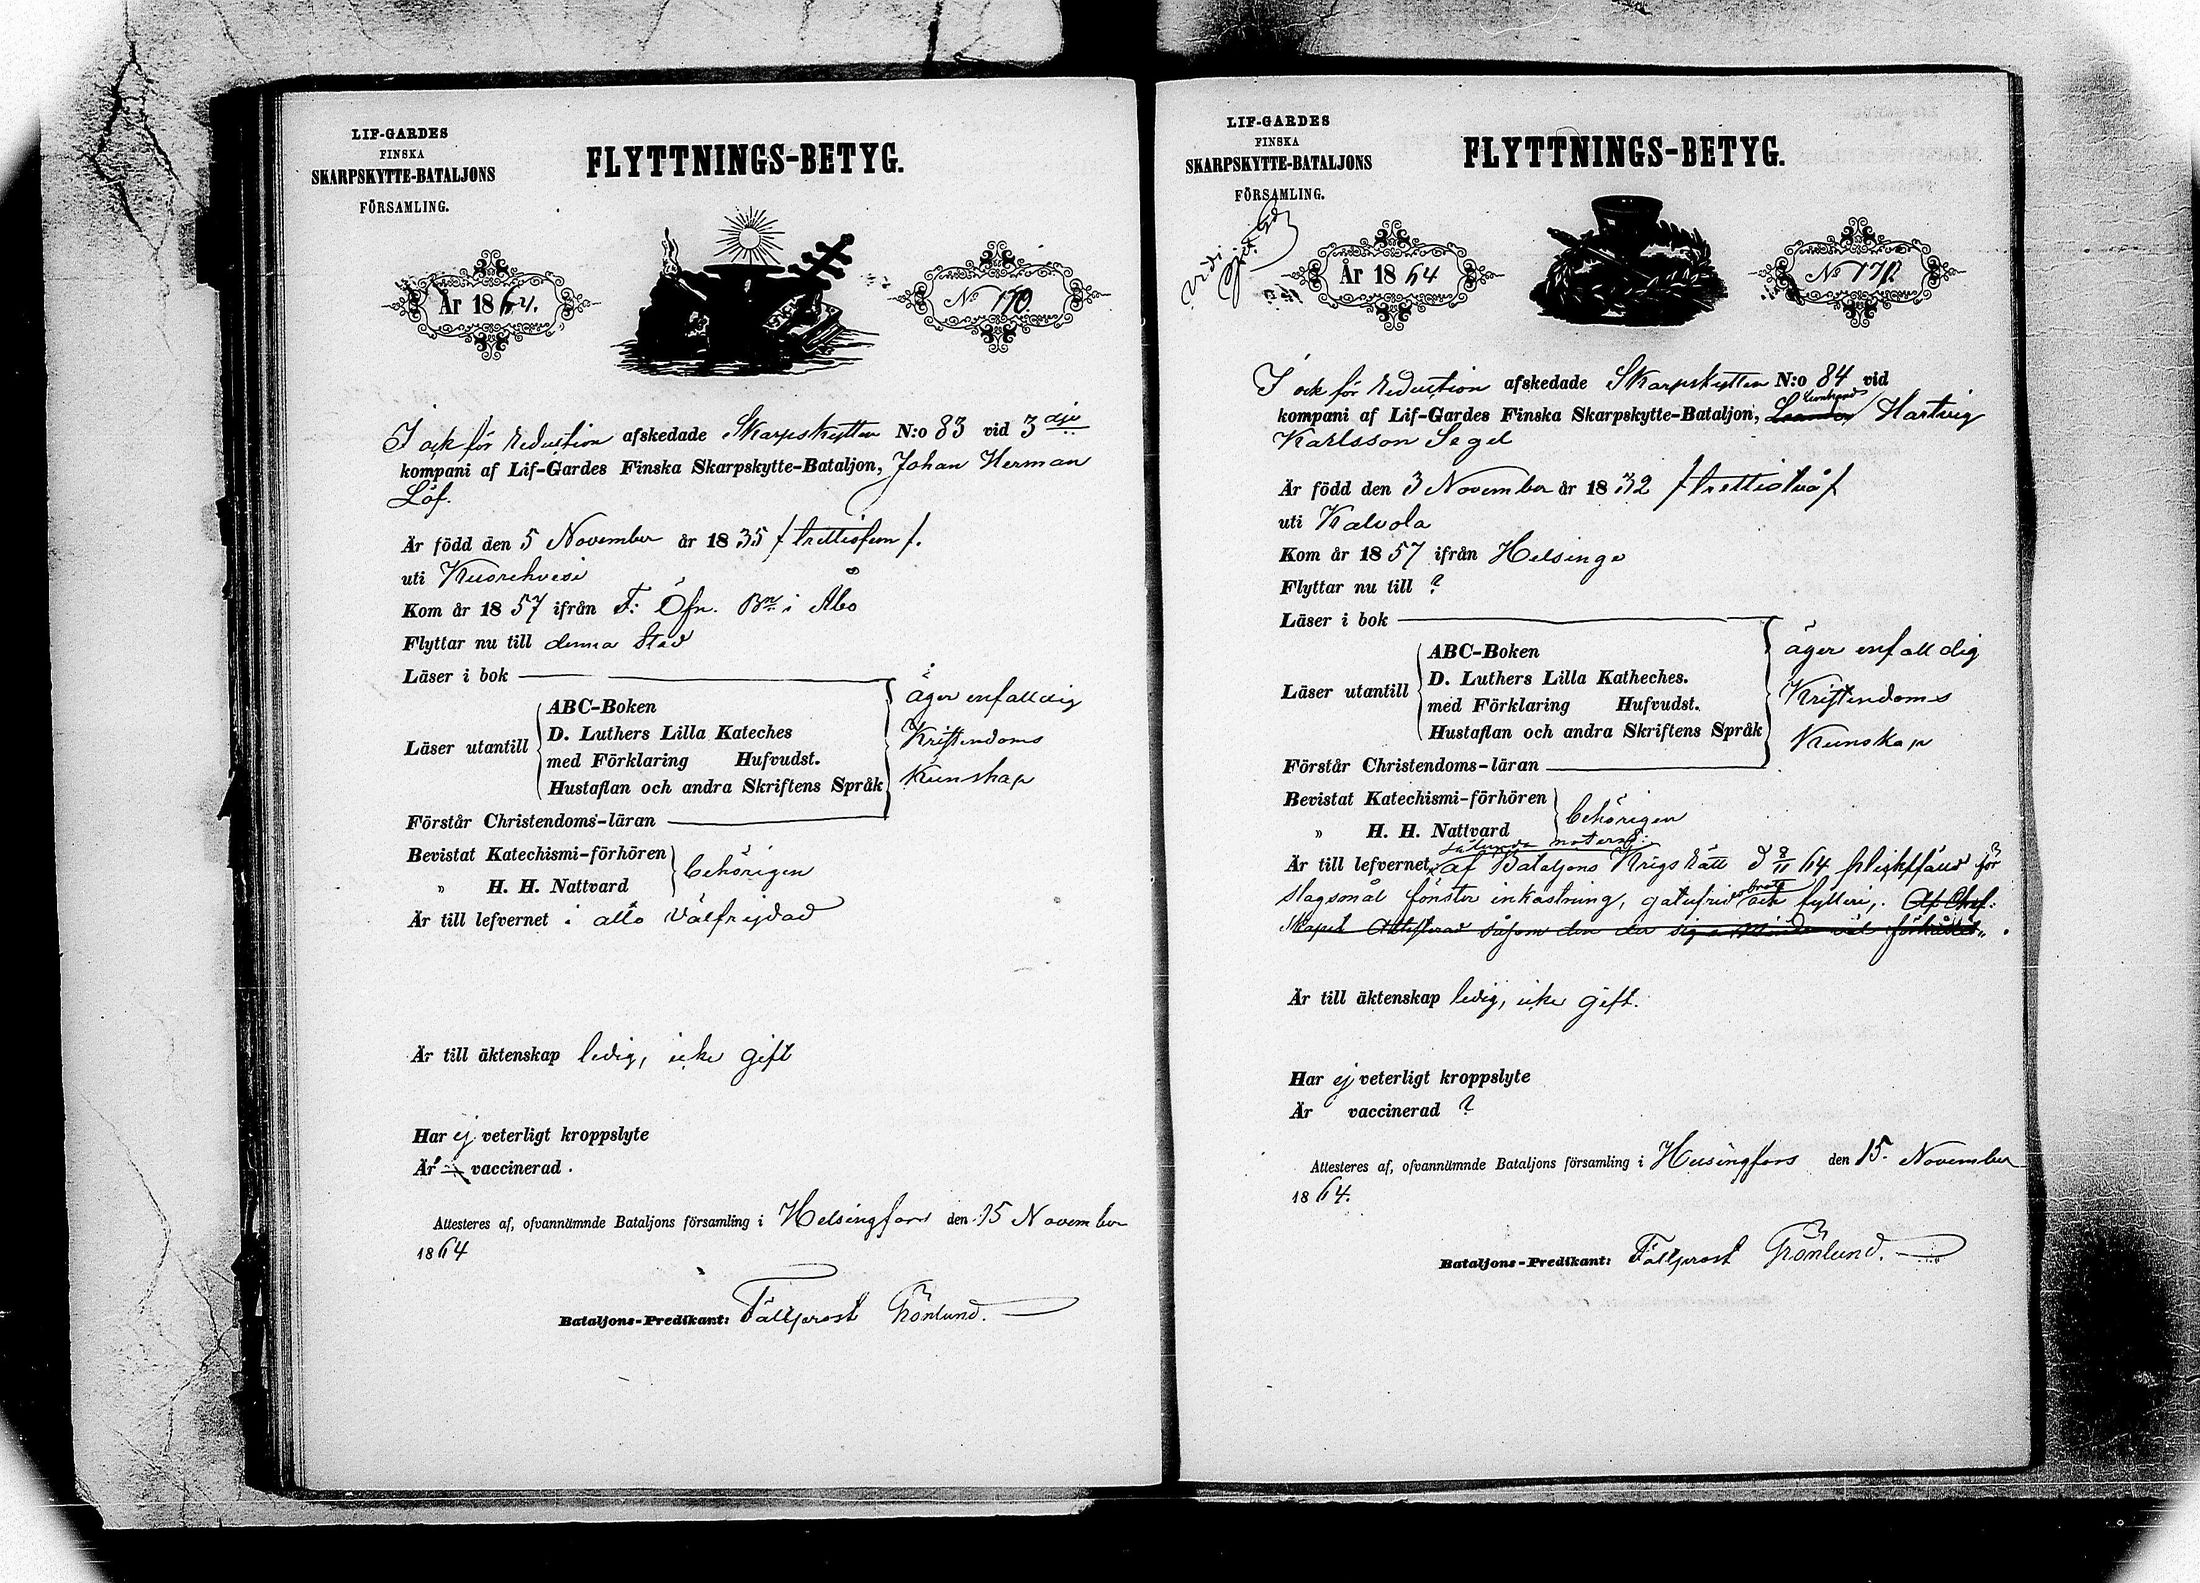 LIF-GARDES
FINSKA
SKARPSKYTTE-BATALJONS
FÖRSAMLING.
FLYTTNINGS-BETYG.
År 1864.
No 170.
I och för reduction afskedade Skarpskytten N:o 83 vid 3dje
kompani af Lif-Gardes Finska Skarpskytte-Bataljon, Johan Herman
Löf.
Är född den 5 November år 1835 /trettiofem/.
uti Kuorehvesi
Kom år 1857 ifrån F: Öfn. Bn i Åbo
Flyttar nu till denna Stad
Läser i bok
Läser utantill
ABC-Boken
D. Luthers Lilla Kateches
med Förklaring Hufvudst.
Hustaflan och andra Skriftens Språk
äger enfaldig
Kristendoms
Kunskap
Förstår Christendoms-läran
Bevistat Katechismi-förhören
" H. H. Nattvard
behörigen
Är till lefvernet i allo välfrejdad
Är till äktenskap ledig, icke gift
Har ej veterligt kroppslyte
Är vaccinerad.
Attesteres af, ofvannämnde Bataljons församling i Helsingfors den 15 November
1864
Bataljons-Predikant: Fältprost Grönlund.
LIF-GARDES
FINSKA
SKARPSKYTTE-BATALJONS
FÖRSAMLING.
FLYTTNINGS-BETYG.
vidi
År 1864
No 171.
I och för reduction afskedade Skarpskytten N:o 84 vid
kompani af Lif-Gardes Finska Skarpskytte-Bataljon, Leander Hartvig
Karlsson Segel
Är född den 3 November år 1832 /trettiotvå/
uti Kalvola
Kom år 1857 ifrån Helsinge
Flyttar nu till ?
Läser i bok
Läser utantill
ABC-Boken
D. Luthers Lilla Katheches.
med Förklaring Hufvudst.
Hustaflan och andra Skriftens Språk
äger enfaldig
Kristendoms
Kunskap
Förstår Christendoms-läran
Bevistat Katechismi-förhören
" H. H. Nattvard
behörigen
sålunda noterad:
Är till lefvernet, af Bataljons Krigs Rätt d 8/11 64 pliktfäld för
slagsmål fönster inkastning, gatufrids brott och fylleri,. Af Chef-
skapet Attesterad såsom den der sig  väl förhållit".
Är till äktenskap ledig, icke gift.
Har ej veterligt kroppslyte
Är vaccinerad ?
Attesteres af, ofvannämnde Bataljons församling i Helsingfors den 15. November
1864.
Bataljons-Predikant: Fältprost Grönlund.